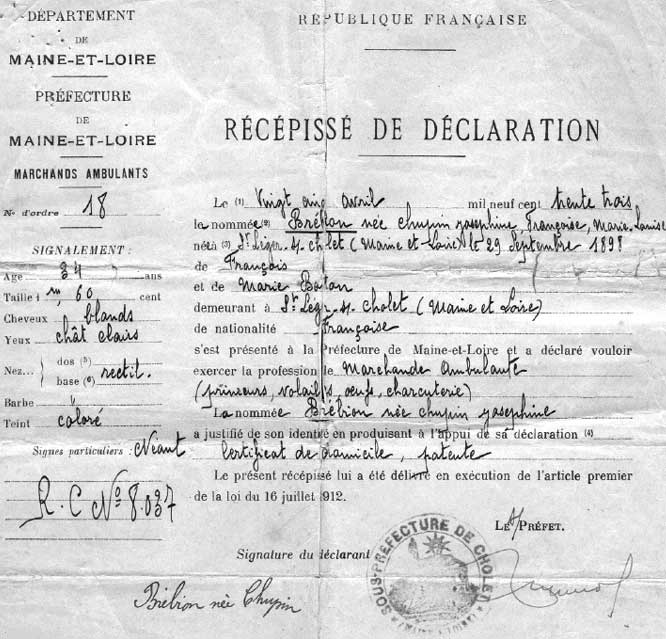 DÉPARTEMENT
DE
MAINE-ET-LOIRE
PRÉFECTURE
DE
MAINE-ET-LOIRE
MARCHANDS AMBULANTS
No d'ordre 18
SIGNALEMENT :
Age 34 ans
Taille 1 m, 60 cent
Cheveux blands
Yeux chât clairs
Nez... dos (5) base (6) rectil.
Barbe "
Teint coloré
Signes particuliers : Néant
R.C No 8.037
RÉPUBLIQUE FRANÇAISE
RÉCÉPISSÉ DE DÉCLARATION
Le (1) Vingt cinq avril mil neuf cent trente trois
la nommée (2) Brébion née Chupin Josephine, Françoise, Marie-Louise
née à (3) St Léger-s/-Cholet (Maine et Loire) le 29 Septembre 1898
de François
et de Marie
demeurant à St Lég-s/- Cholet (Maine et Loire)
de nationalité Française
s'est présenté à la Préfecture de Maine-et-Loire et a déclaré vouloir
exercer la profession de Marchande Ambulante
(primeurs, volailles, œufs, charcuterie)
La nommée Brébion née Chupin Josephine
a justifié de son identité en produisant à l'appui de sa déclaration (4)
Certificat de domicile, patente
Le présent récépissé lui a été délivré en exécution de l'article premier
de la loi du 16 juillet 1912.
LE s/ PRÉFET.
Signature du déclarant
SOUS-PRÉFECTURE DE CHOLET
Brébion née Chupin